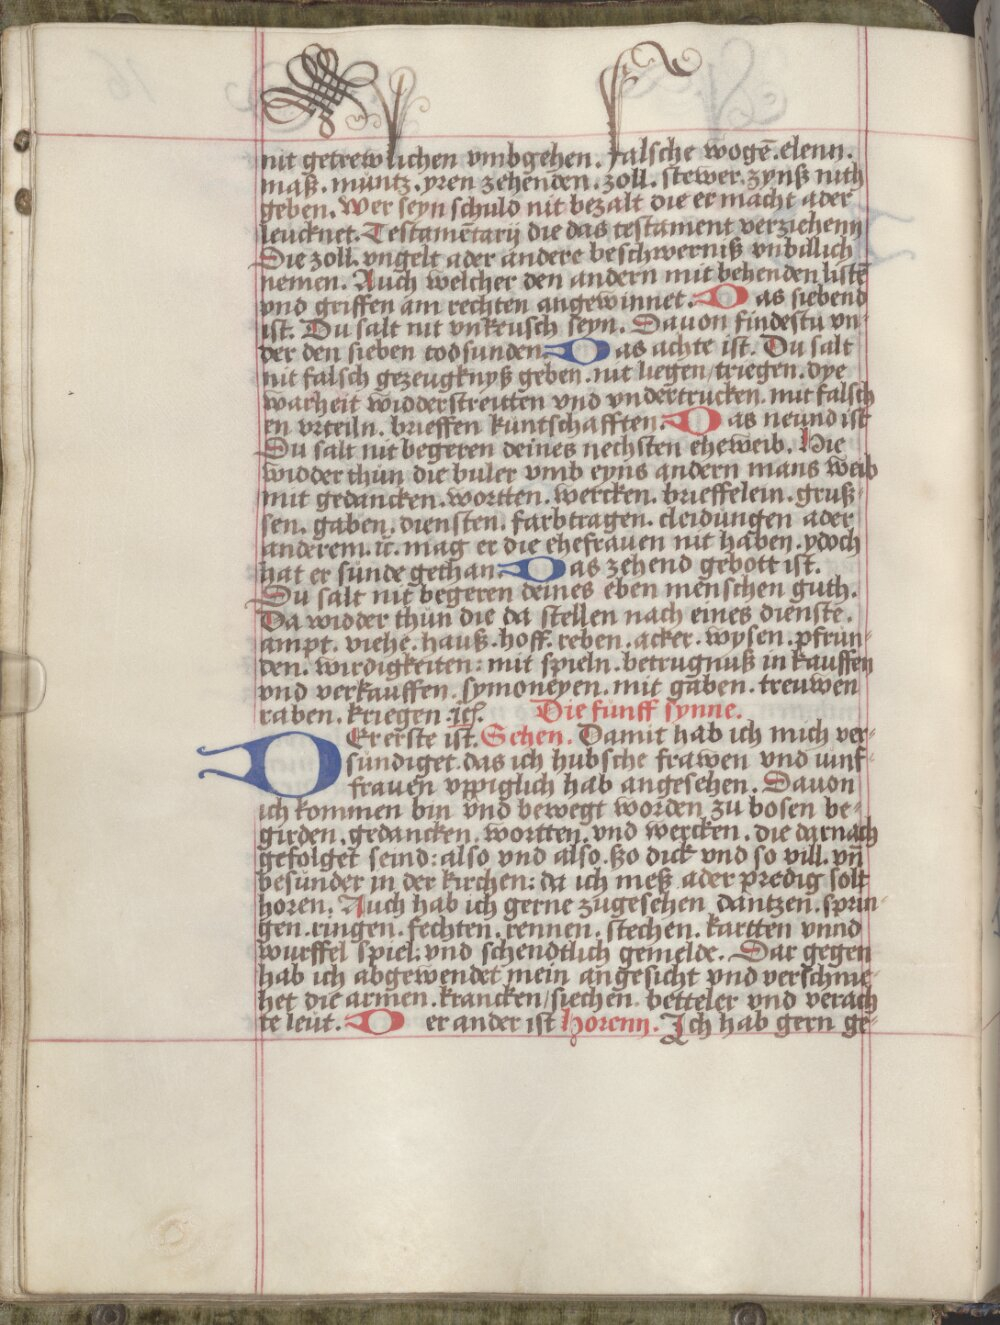 nit getrewlichen vmbgehen. falsche wogē. elenn.
maß. müntz. yren zehenden. zoll. stewer. zynß nith
geben. Wer seyn schuld nit bezalt die er macht ader
leucknet. Testamētarij die das testament verziehenn
Die zoll. vngelt ader andere beschwerniß vnbillich
nemen. Auch welcher den andern mit behenden listē
vnd griffen am rechten angewinnet. Das siebend
ist. Du salt nit vnkeusch seyn. Dauon findestu vn-
der den sieben todsunden. Das achte ist. Du salt
nit falsch gezeugknyß geben. nit liegen/triegen. dye
warheit widderstreitten vnd vndertrucken. mit falsch
en vrteiln. brieffen kuntschafften. Das neund ist
Du salt nit begeren deines nechsten eheweib. Hie
widder thun die buler vmb eyns andern mans weib
mit gedancken. wortten. wercken. brieffelein. gruß-
sen. gaben. diensten. farbtragen. cleidungen ader
anderem. ꝛc. mag er die ehefrauen nit haben. ydoch
hat er sunde gethan. Das zehend gebott ist.
Du salt nit begeren deines eben menschen guth.
Da widder thun die da stellen nach eines dienste.
ampt. viehe. hauß. hoff. reben. acker. wysen. pfrun-
den. wirdigkeiten: mit spieln. betrugnuß in kauffen
vnd verkauffen. symoneyen. mit gaben. treuwen
raben. kriegen ꝛc. Die funff synne.
DEr erste ist. Sehen. Damit hab ich mich ver-
sündiget. das ich hubsche frawen vnd iunf-
frauen vppiglich hab angesehen. Dauon
ich kommen bin vnd bewegt worden zu bosen be-
girden. gedancken. wortten. vnd wercken. die darnach
gefolget seind: also vnd also. ßo dick vnd so vill. vn̄
besunder in der kirchen: da ich meß ader predig solt
horen. Auch hab ich gerne zugesehen dantzen. sprin-
gen. ringen. fechten. rennen. stechen. kartten vnnd
wurffel spiel. vnd schendtlich gemelde. Dar gegen
hab ich abgewendet mein angesicht vnd verschme-
het die armen. krancken/siechen. betteler vnd verach
te leut. Der ander ist horenn. Ich hab gern ge-